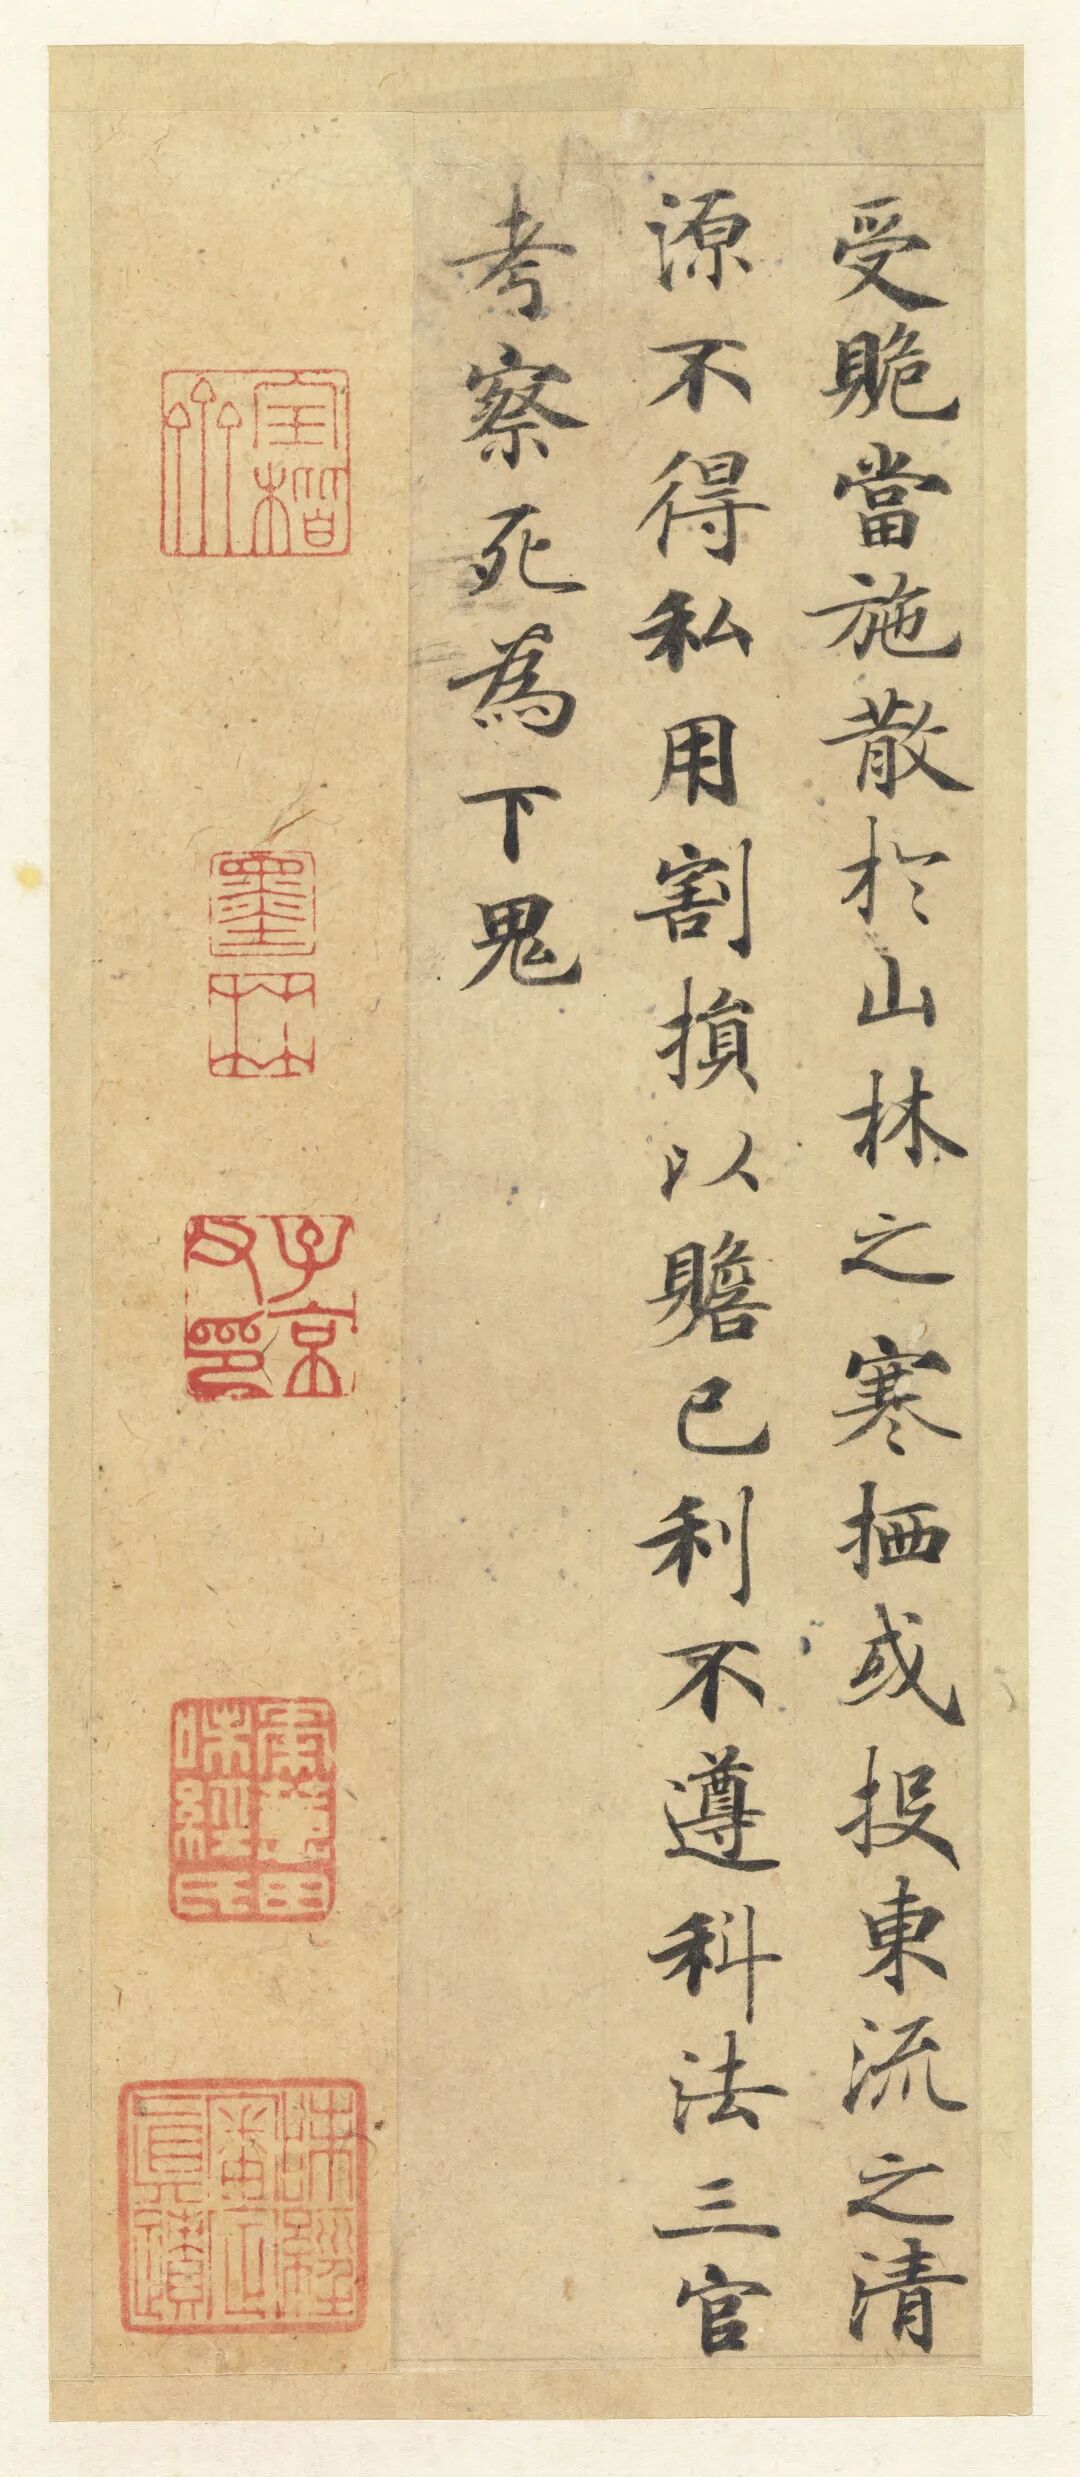 受賕當施散於山林之寒栖或投東流之清
源不得私用割損以贍己利不遵科法三官
考察死為下鬼
墨林
子京父印